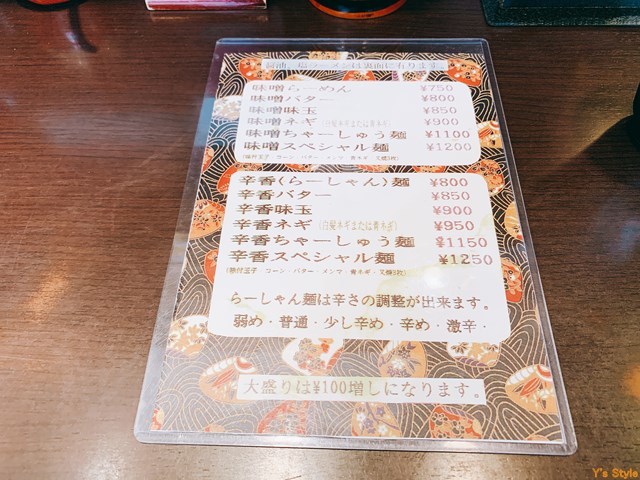 醤油、塩ラーメンは裏面に有ります。
味噌らーめん ¥750
味噌バター ¥800
味噌味玉 ¥850
味噌ネギ(白髪ネギまたは青ネギ) ¥900
味噌ちゃーしゅう麺 ¥1100
味噌スペシャル麺 ¥1200
(味付玉子 コーン・バター・メンマ・青ネギ・叉焼3枚)
辛香(らーしゃん)麺 ¥800
辛香バター ¥850
辛香味玉 ¥900
辛香ネギ(白髪ネギまたは青ネギ) ¥950
辛香ちゃーしゅう麺 ¥1150
辛香スペシャル麺 ¥1250
(味付玉子 コーン・バター・メンマ・青ネギ・叉焼3枚)
らーしゃん麺は辛さの調整が出来ます。
弱め・普通・少し辛め・辛め・激辛・
大盛りは¥100増しになります。
Y's Style